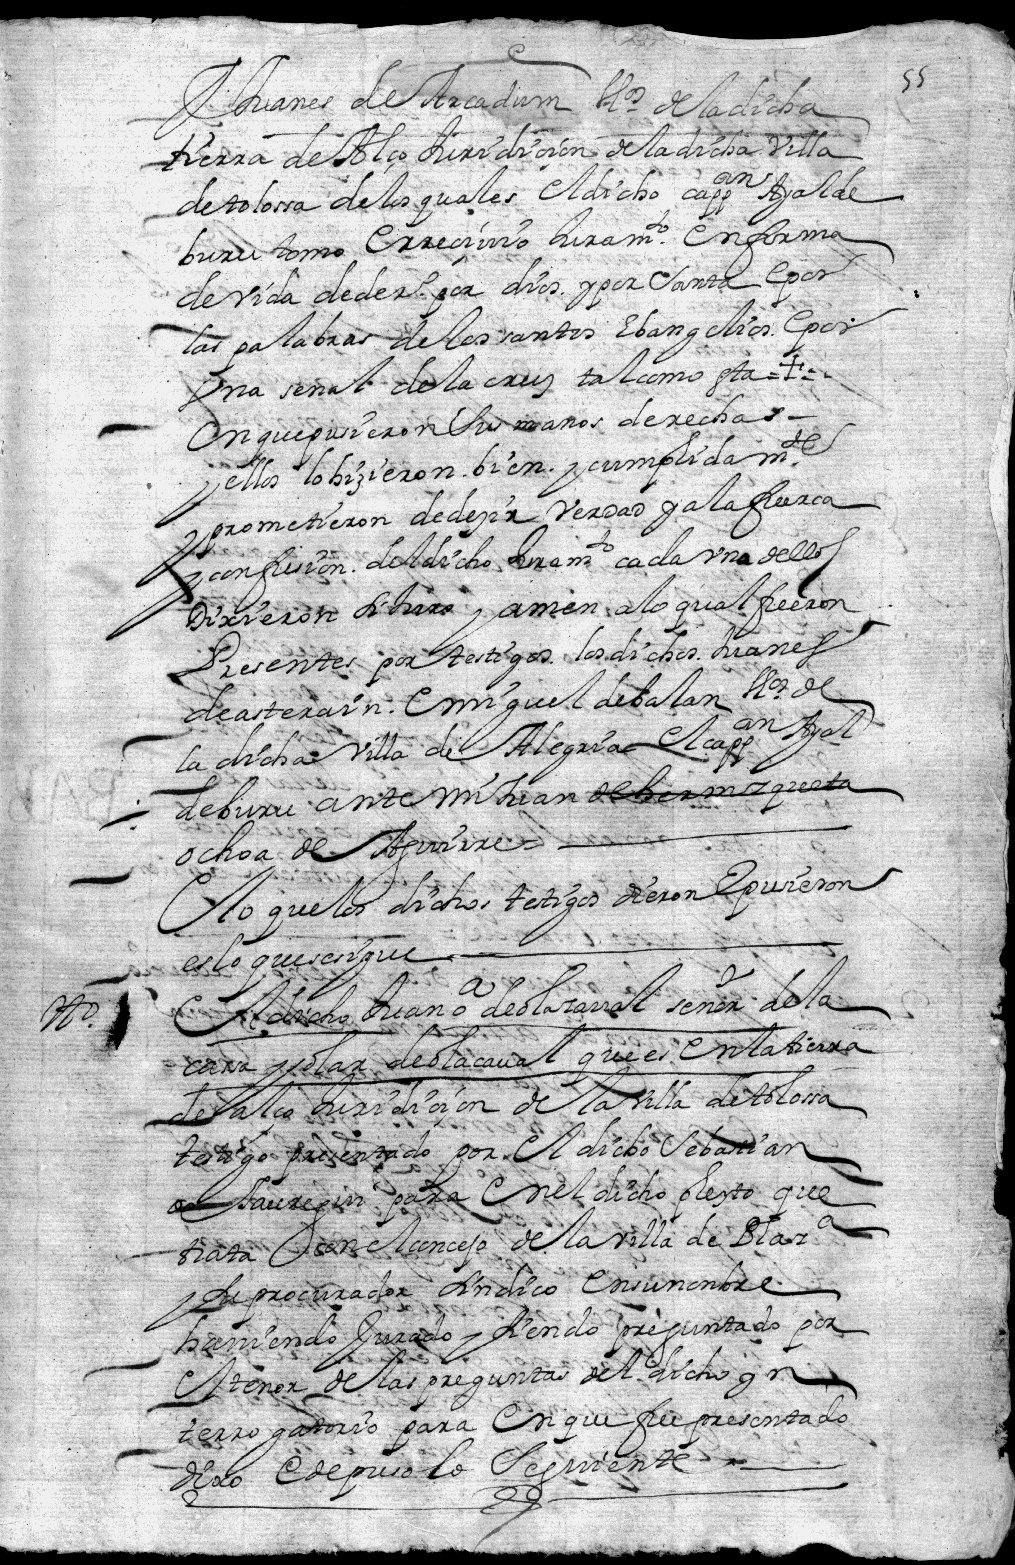 55
Juanes de Arcadum Vzºs de la dicha
tierra de Alço Juridicion de la dicha Villa
de tolossa de los quales El dicho cappan Ayalde
buru tomo E rreciuio Juramto En forma
de vida de derº por dios y por Santa E por
las palabras de los santos Ebangelios E por
Una señal de la cruz tal como esta = + =
En que pusieron Sus manos derechas
y ellos lo hizieron bien y cumplidamte
y prometieron de dezir verdad y a la fuerca
y confusion del dicho Juramto cada uno dellos
Dixieron Si Juro y amen a lo qual fueron
Presentes por testigos los dichos Juanes
de asterain E miguel de balan Vzºs de
la dicha Villa de Alegria El cappan Ayal
deburu ante mi Juan de hermizqueta
ochoa de Aguirre =
E lo que los dichos testigos dieron E pusieron
es lo que se sigue
Tº El dicho Juan o de olazaual señor de la
casa y solar de olacaual que es En la tierra
de alço Juridicion de la Villa de tolossa
testigo presentado por El dicho Sebastian
de Jauregui para En el dicho pleyto que
trata Con el concejo de la Villa de
y Su procurador Sindico En su nonbre
hauiendo Jurado y Siendo preguntado por
El tenor de las preguntas del dicho yn
terrogatorio para En que fue presentado
dixo E depuso lo Seguiente